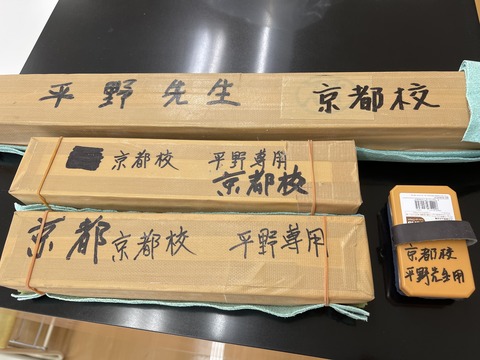 平野先生 京都校
京都校 平野専用
京都校
京都 京都校 平野専用
京都校
平野先生用